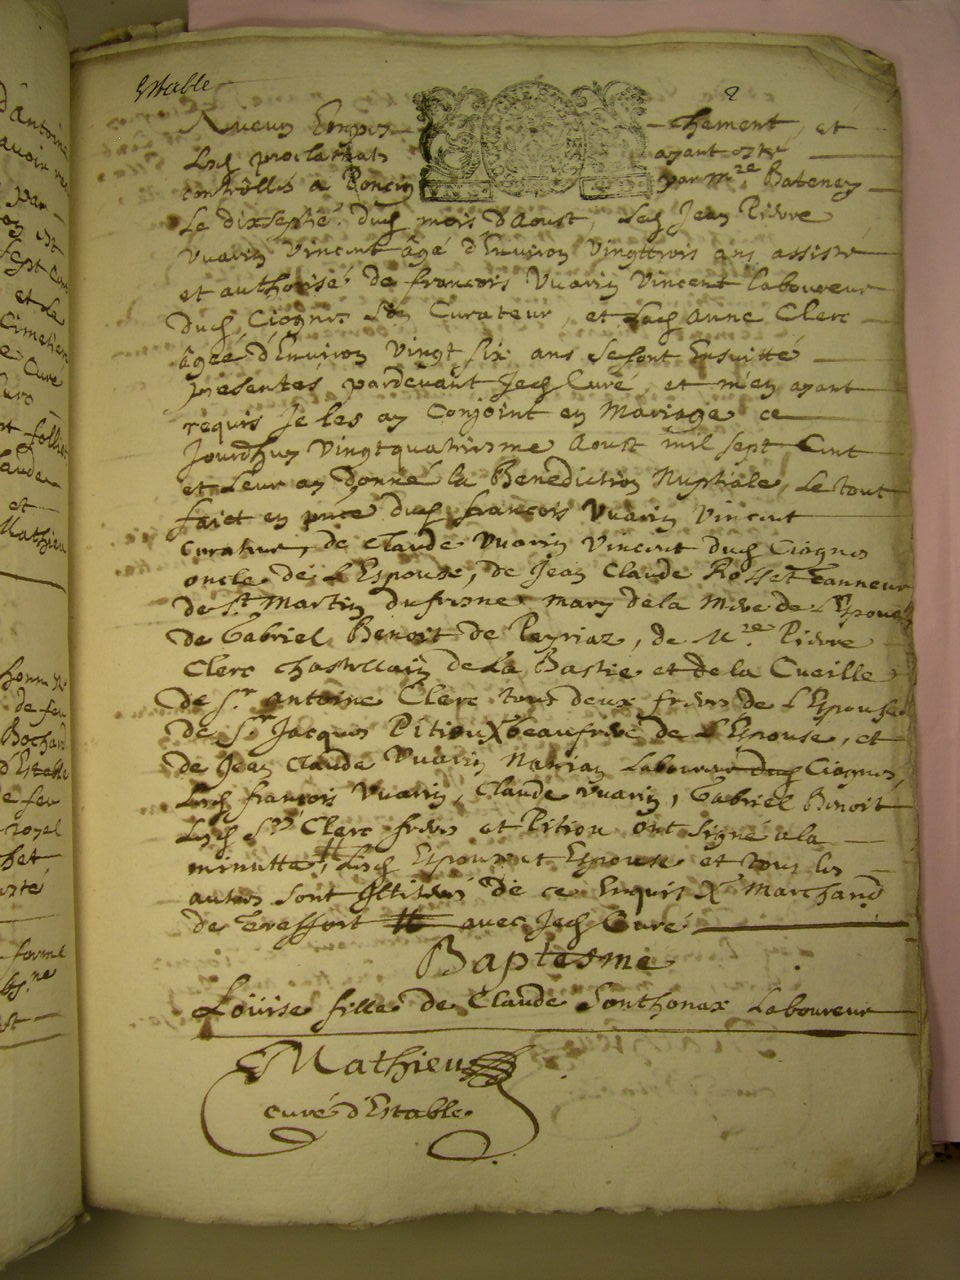 Estable
2
Aucun Empes- chement, et
Lesd proclamats ayant este
controllés a Poncin par Mre Bateney
Le dixseptie. dud mois d'Aoust, Led Jean Pierre
Vuarin Vincent âgé d'Environ Vingttrois ans assisté
et authorisé de françois Vuarin Vincent laboureur
dud Ciognes son Curateur, et Lad Anne Clerc
âgée d'Environ Vingt six ans se sont Ensuitte
presentés pardevant Jed Curé, et m'en ayant
requis Je les ay Conjoint en Mariage ce
Jourdhuy Vingtquatriesme Aoust mil sept Cent
et Leur ay donné la Benediction Nuptiale, Le tout
faict en pnce dud françois Vuarin Vincent
curateur, de Claude Vuarin Vincent dud Ciognes
oncle de L'Espouse, de Jean Claude Rosset Tanneur
de St Martin dufresne mary dela Mere de L'Espouse
de Gabriel Benoit de Peyriaz, de Mre Pierre
Clerc Chastellain de La Bastie et de la Cueille
de Sr antoine Clerc tous deux freres de L'Espouse
de Sr Jacques Pition X beaufrere de L'Espouse, et
de Jean Claude Vuarin Narian Laboureur dud Ciognes,
Lesd françois Vuarin, Claude Vuarin, Gabriel Benoit
Lesd Srs Clerc freres et Pition ont signé a la
minutte, Lesd Espoux et Espouse et tous les
autres sont Illitérés de ce Enquis X Marchand
de Treffort avec Jed Curé
Baptesme
Loüise fille de Claude Sonthonax Laboureur
Mathieu
curé d'Estable